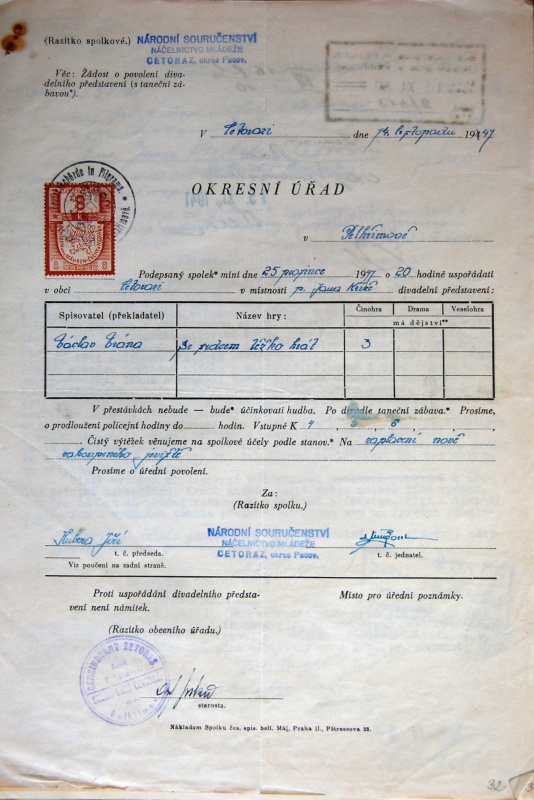 (Razítko spolkové.) NÁRODNÍ SOURUČENSTVÍ
NÁČELNICTVO MLÁDEŽE
CETORAZ, okres Pacov.
Věc: Žádost o povolení diva-
delního představení (s taneční zá-
bavou*).
V Cetorazi dne 14. listopadu 1941
OKRESNÍ ÚŘAD
v Pelhřimově
8
Podepsaný spolek* míní dne 25 prosince 1941 o 20 hodině uspořádati
v obci Cetorazi v místnosti p. Jana divadelní představení:
Spisovatel (překladatel) Název hry: Činohra Drama Veselohra
má dějství**
Václav Vrána Se srdcem těžko hrát 3
V přestávkách nebude — bude* účinkovati hudba. Po divadle taneční zábava.* Prosíme,
o prodloužení policejní hodiny do hodin. Vstupné K 4, 5, 6, , ,
Čistý výtěžek věnujeme na spolkové účely podle stanov.* Na zaplacení nově
zakoupeného jeviště
Prosíme o úřední povolení.
Za:
(Razítko spolku.)
Kubera Jiří NÁRODNÍ SOURUČENSTVÍ
NÁČELNICTVO MLÁDEŽE
CETORAZ, okres Pacov.
t. č. předseda. t. č. jednatel.
Viz poučení na zadní straně.
Proti uspořádání divadelního předsta-
vení není námitek.
Místo pro úřední poznámky.
(Razítko obecního úřadu.)
GEMEINDEAMT ZETORAS
starosta.
Nákladem Spolku čes. spis. bell. Máj, Praha II., Pštrossova 25.
32